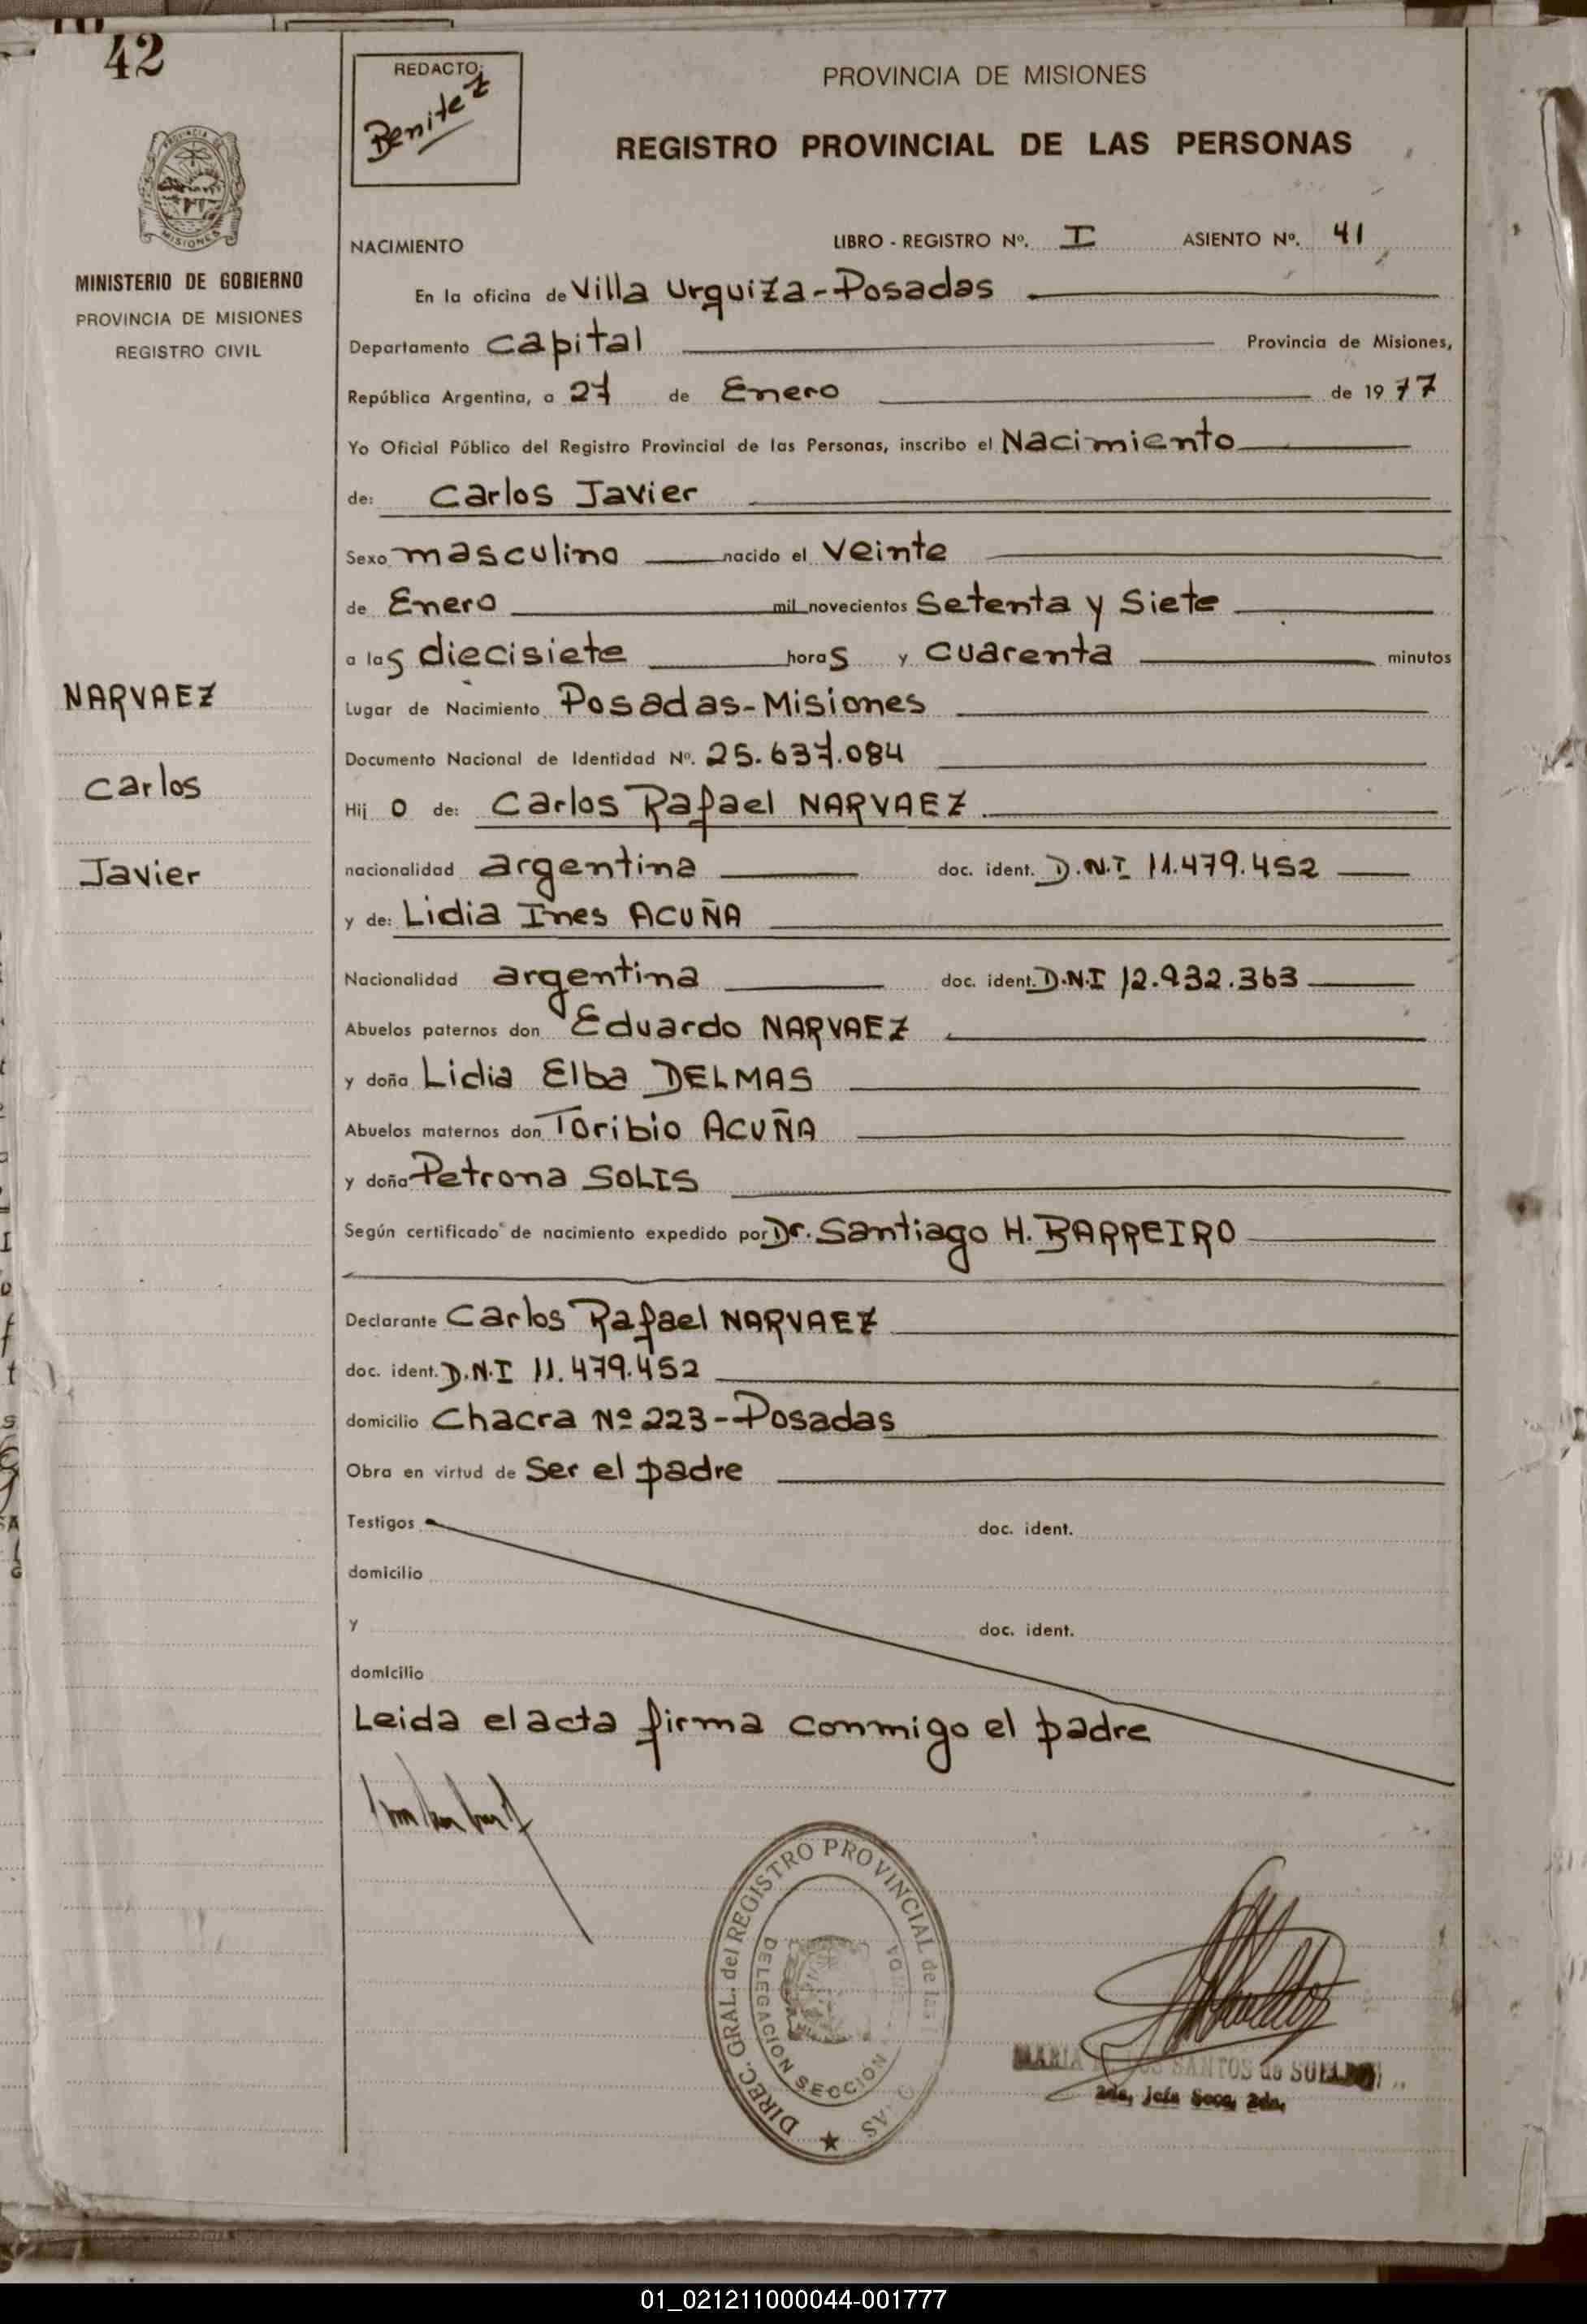 42
REDACTO:
Benitez
PROVINCIA DE MISIONES
REGISTRO PROVINCIAL DE LAS PERSONAS
PROVINCIA DE
MISIONES
MINISTERIO DE GOBIERNO
PROVINCIA DE MISIONES
REGISTRO CIVIL
NACIMIENTO LIBRO - REGISTRO Nº. I ASIENTO Nº. 41
En la oficina de Villa Urquiza - Posadas
Departamento Capital Provincia de Misiones,
República Argentina, a 27 de Enero de 1977
Yo Oficial Público del Registro Provincial de las Personas, inscribo el Nacimiento
de: Carlos Javier
Sexo masculino nacido el veinte
de Enero mil novecientos Setenta y Siete
a las diecisiete horas y cuarenta minutos
NARVAEZ
Carlos
Javier
Lugar de Nacimiento Posadas - Misiones
Documento Nacional de Identidad Nº. 25.637.084
Hijo de: Carlos Rafael NARVAEZ
nacionalidad argentina doc. ident. D.N.I 11.479.452
y de: Lidia Ines ACUÑA
Nacionalidad argentina doc. ident. D.N.I 12.932.363
Abuelos paternos don Eduardo NARVAEZ
y doña Lidia Elba DELMAS
Abuelos maternos don Toribio ACUÑA
y doña Petrona SOLIS
Según certificado de nacimiento expedido por Dr. Santiago H. BARREIRO
Declarante Carlos Rafael NARVAEZ
doc. ident. D.N.I 11.479.452
domicilio Chacra Nº 223 - Posadas
Obra en virtud de Ser el padre
Testigos doc. ident.
domicilio
y doc. ident.
domicilio
Leida el acta firma conmigo el padre
DIREC. GRAL. del REGISTRO PROVINCIAL de las
DELEGACION SECCION
MARIA SANTOS de
2da. Jefa Secc. 2da.
01_021211000044-001777